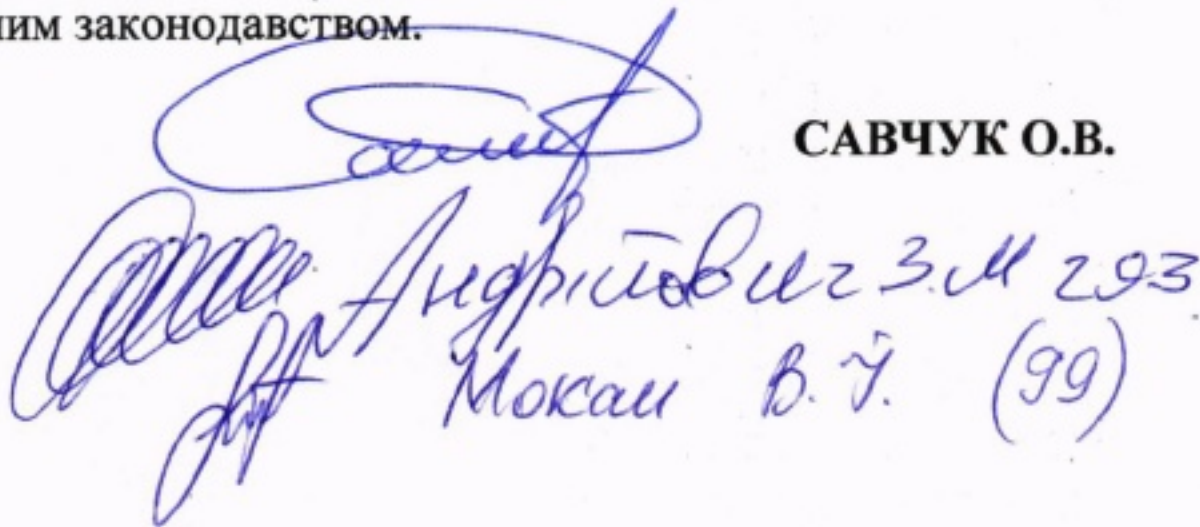 ним законодавством.
САВЧУК О.В.
Андрійович З.М 293
Мокан В.Й. (99)